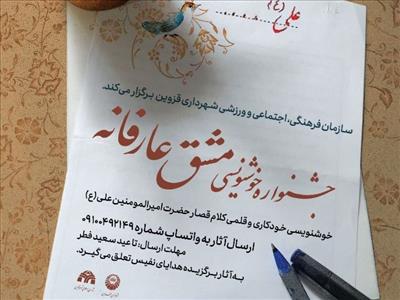 علی (ع)
سازمان فرهنگی، اجتماعی و ورزشی شهرداری قزوین برگزار می‌کند.
جشنواره خوشنویسی مشق عارفانه
خوشنویسی خودکاری و قلمی کلام قصار حضرت امیرالمومنین علی (ع)
ارسال آثار به واتساپ شماره ۰۹۱۰۰۴۹۲۱۴۹
مهلت ارسال: تا عید سعید فطر
به آثار برگزیده هدایای نفیس تعلق می‌گیرد.